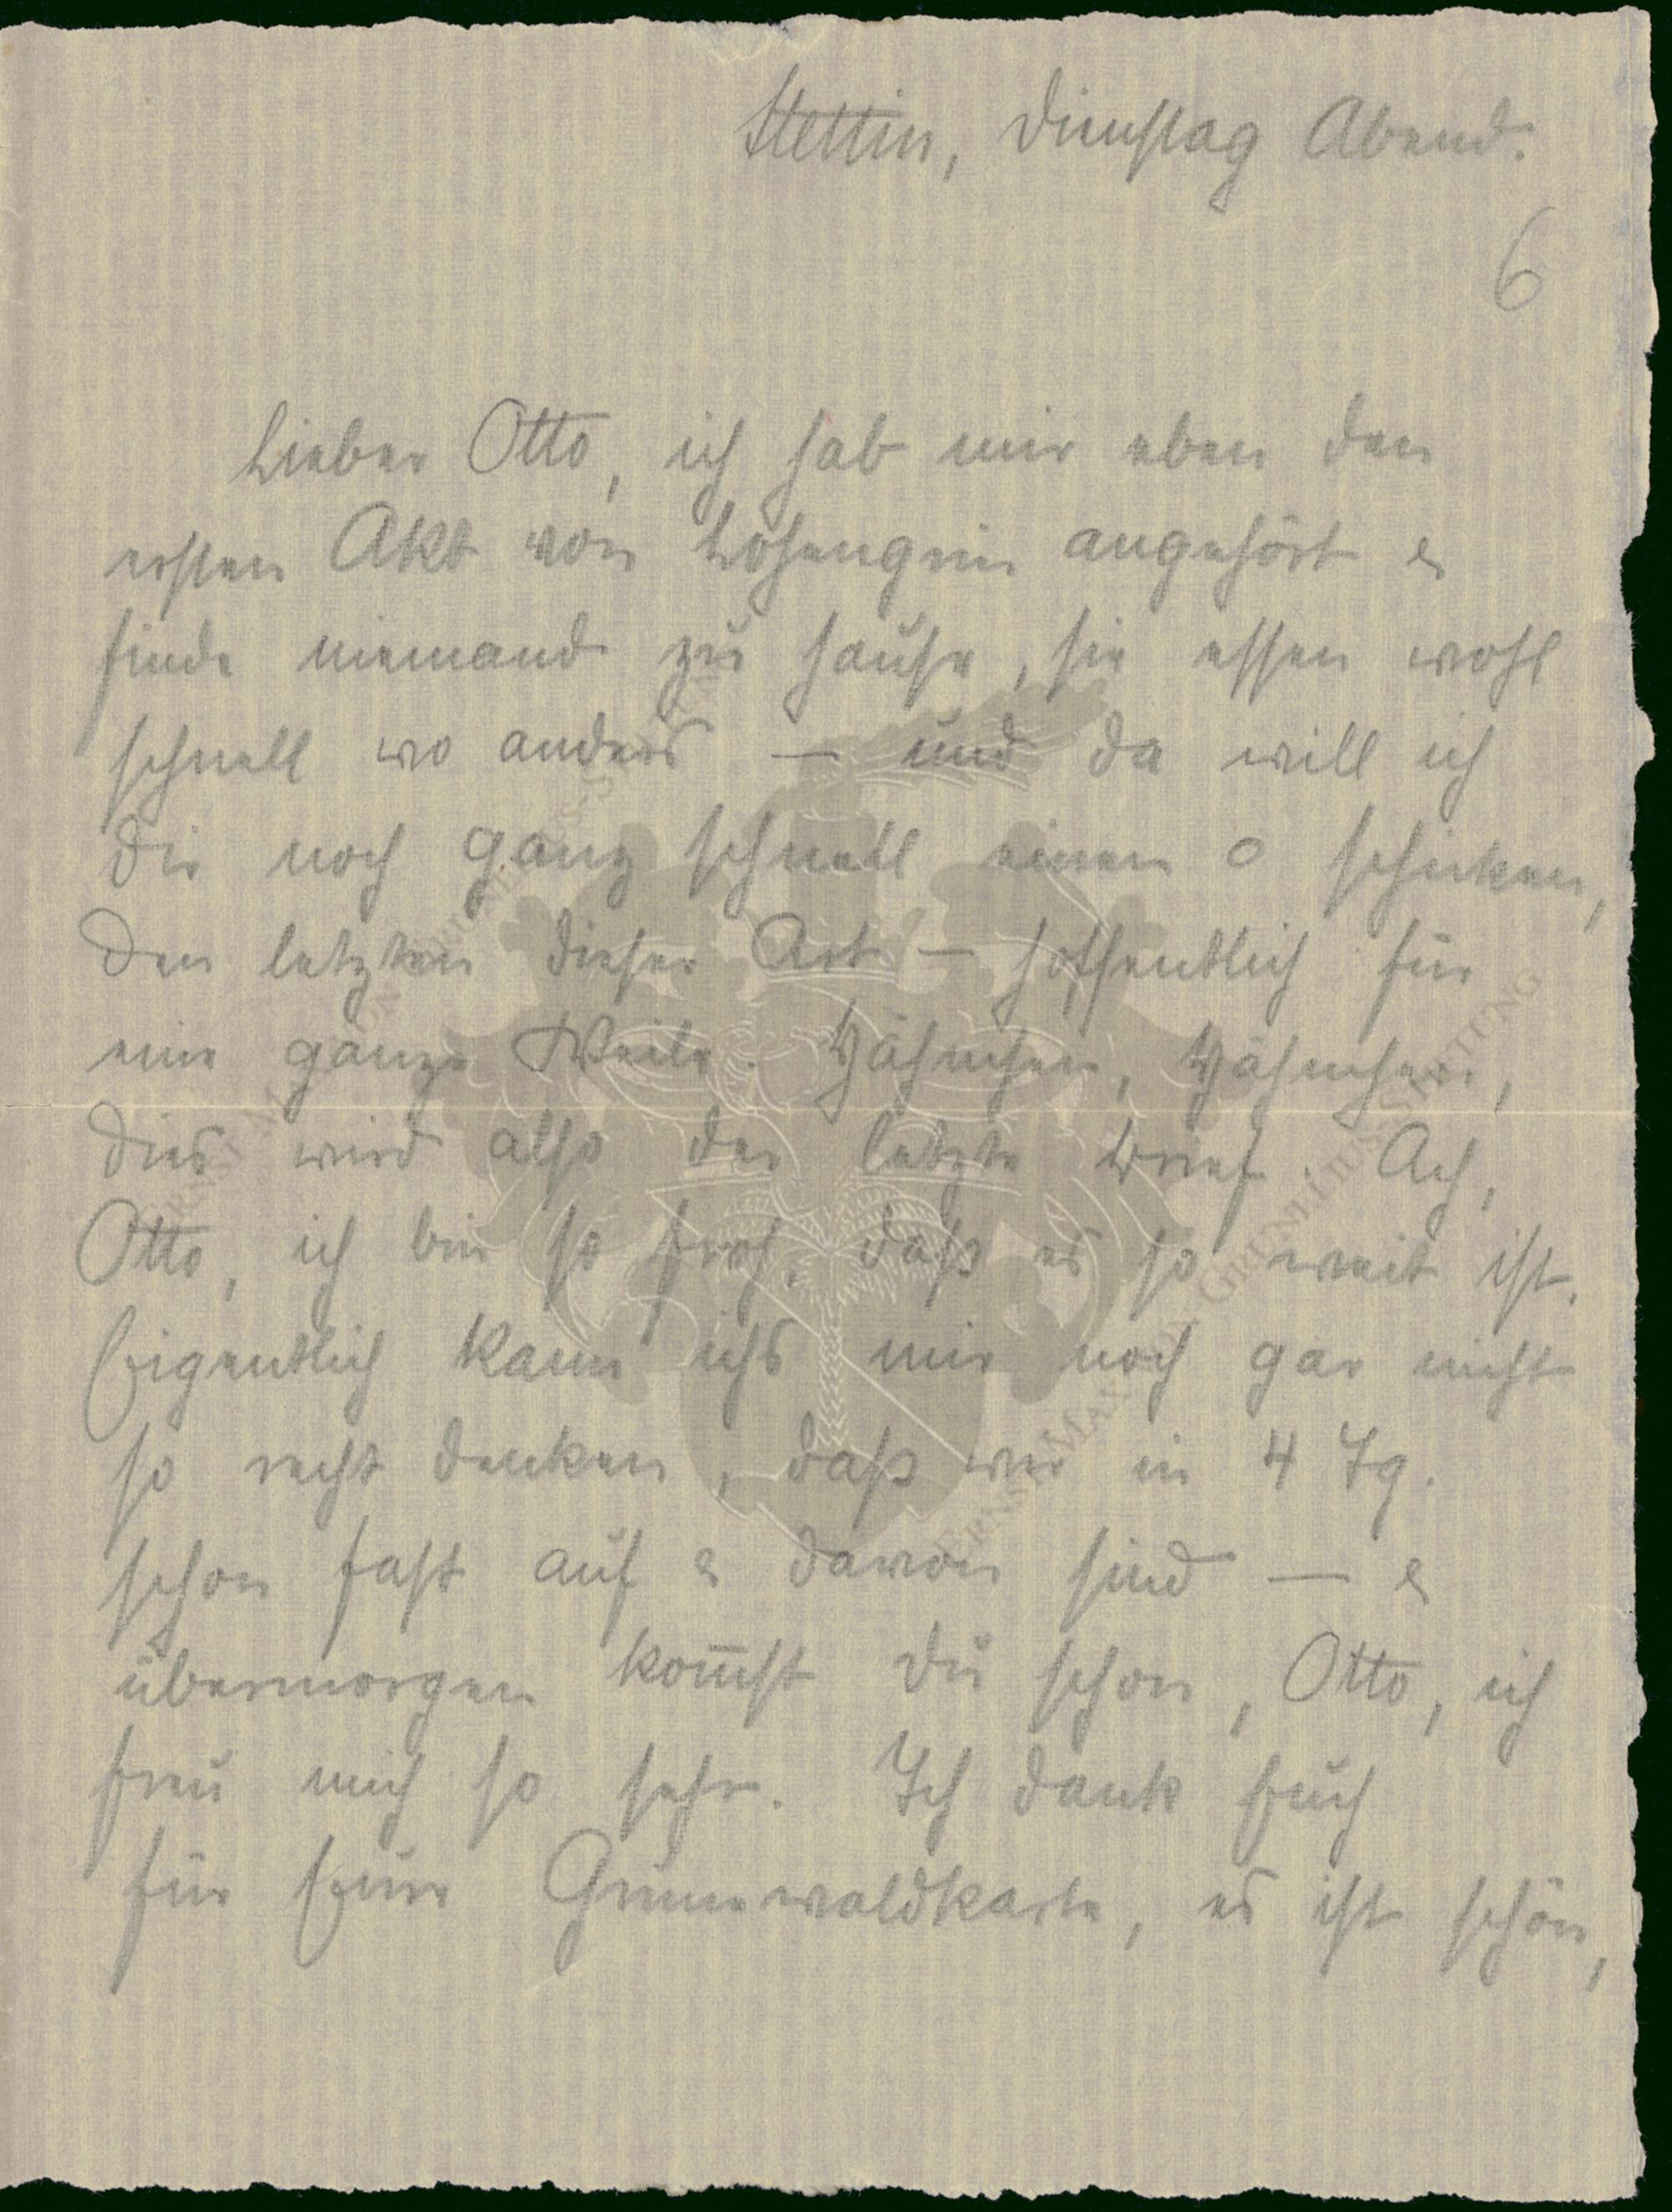 Stettin, Dienstag Abend.
6
Lieber Otto, ich hab mir eben den
ersten Akt von Lohengrin angehört &
finde niemand zu hause, sie essen wohl
schnell wo anders — und da will ich
Dir noch ganz schnell einen o schicken,
den letzten dieser Art — hoffentlich für
eine ganze Weile.
dies wird also der letzte Brief. Ach,
Otto, ich bin so froh, daß es so weit ist.
Eigentlich kann ichs mir noch gar nicht
so recht denken, daß wir in 4 Tg.
schon fast auf & davon sind — &
übermorgen kom̅st Du schon, Otto, ich
freu mich so sehr. Ich dank Euch
für Eure Grunewaldkarte, es ist schön,
ERNST MARLIER